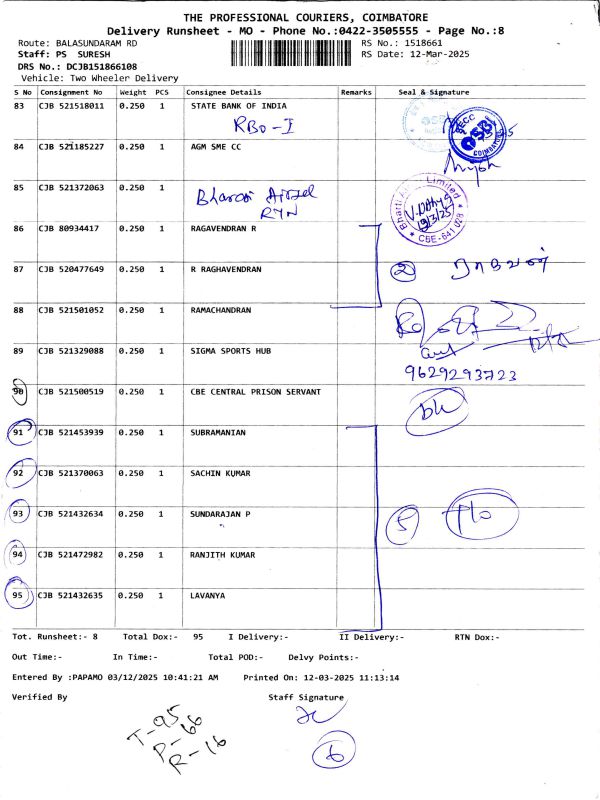 THE PROFESSIONAL COURIERS, COIMBATORE
Delivery Runsheet - MO - Phone No.:0422-3505555 - Page No.:8
Route: BALASUNDARAM RD
RS No.: 1518661
Staff: PS SURESH
RS Date: 12-Mar-2025
DRS No.: DCJB151866108
Vehicle: Two Wheeler Delivery
S No Consignment No Weight PCS Consignee Details Remarks Seal & Signature
83 CJB 521518011 0.250 1 STATE BANK OF INDIA
RBO-I
84 CJB 521185227 0.250 1 AGM SME CC
85 CJB 521372063 0.250 1
Bharti Airtel
RTN
Bharti Limited
CBE-641 028
86 CJB 80934417 0.250 1 RAGAVENDRAN R
87 CJB 520477649 0.250 1 R RAGHAVENDRAN
2 ராகவன்
88 CJB 521501052 0.250 1 RAMACHANDRAN
89 CJB 521329088 0.250 1 SIGMA SPORTS HUB
9629293723
90 CJB 521500519 0.250 1 CBE CENTRAL PRISON SERVANT
91 CJB 521453939 0.250 1 SUBRAMANIAN
92 CJB 521370063 0.250 1 SACHIN KUMAR
93 CJB 521432634 0.250 1 SUNDARAJAN P
5
94 CJB 521472982 0.250 1 RANJITH KUMAR
95 CJB 521432635 0.250 1 LAVANYA
Tot. Runsheet:- 8 Total Dox:- 95 I Delivery:- II Delivery:- RTN Dox:-
Out Time:- In Time:- Total POD:- Delvy Points:-
Entered By :PAPAMO 03/12/2025 10:41:21 AM Printed On: 12-03-2025 11:13:14
Verified By Staff Signature
T-95
P-66
R-16
6